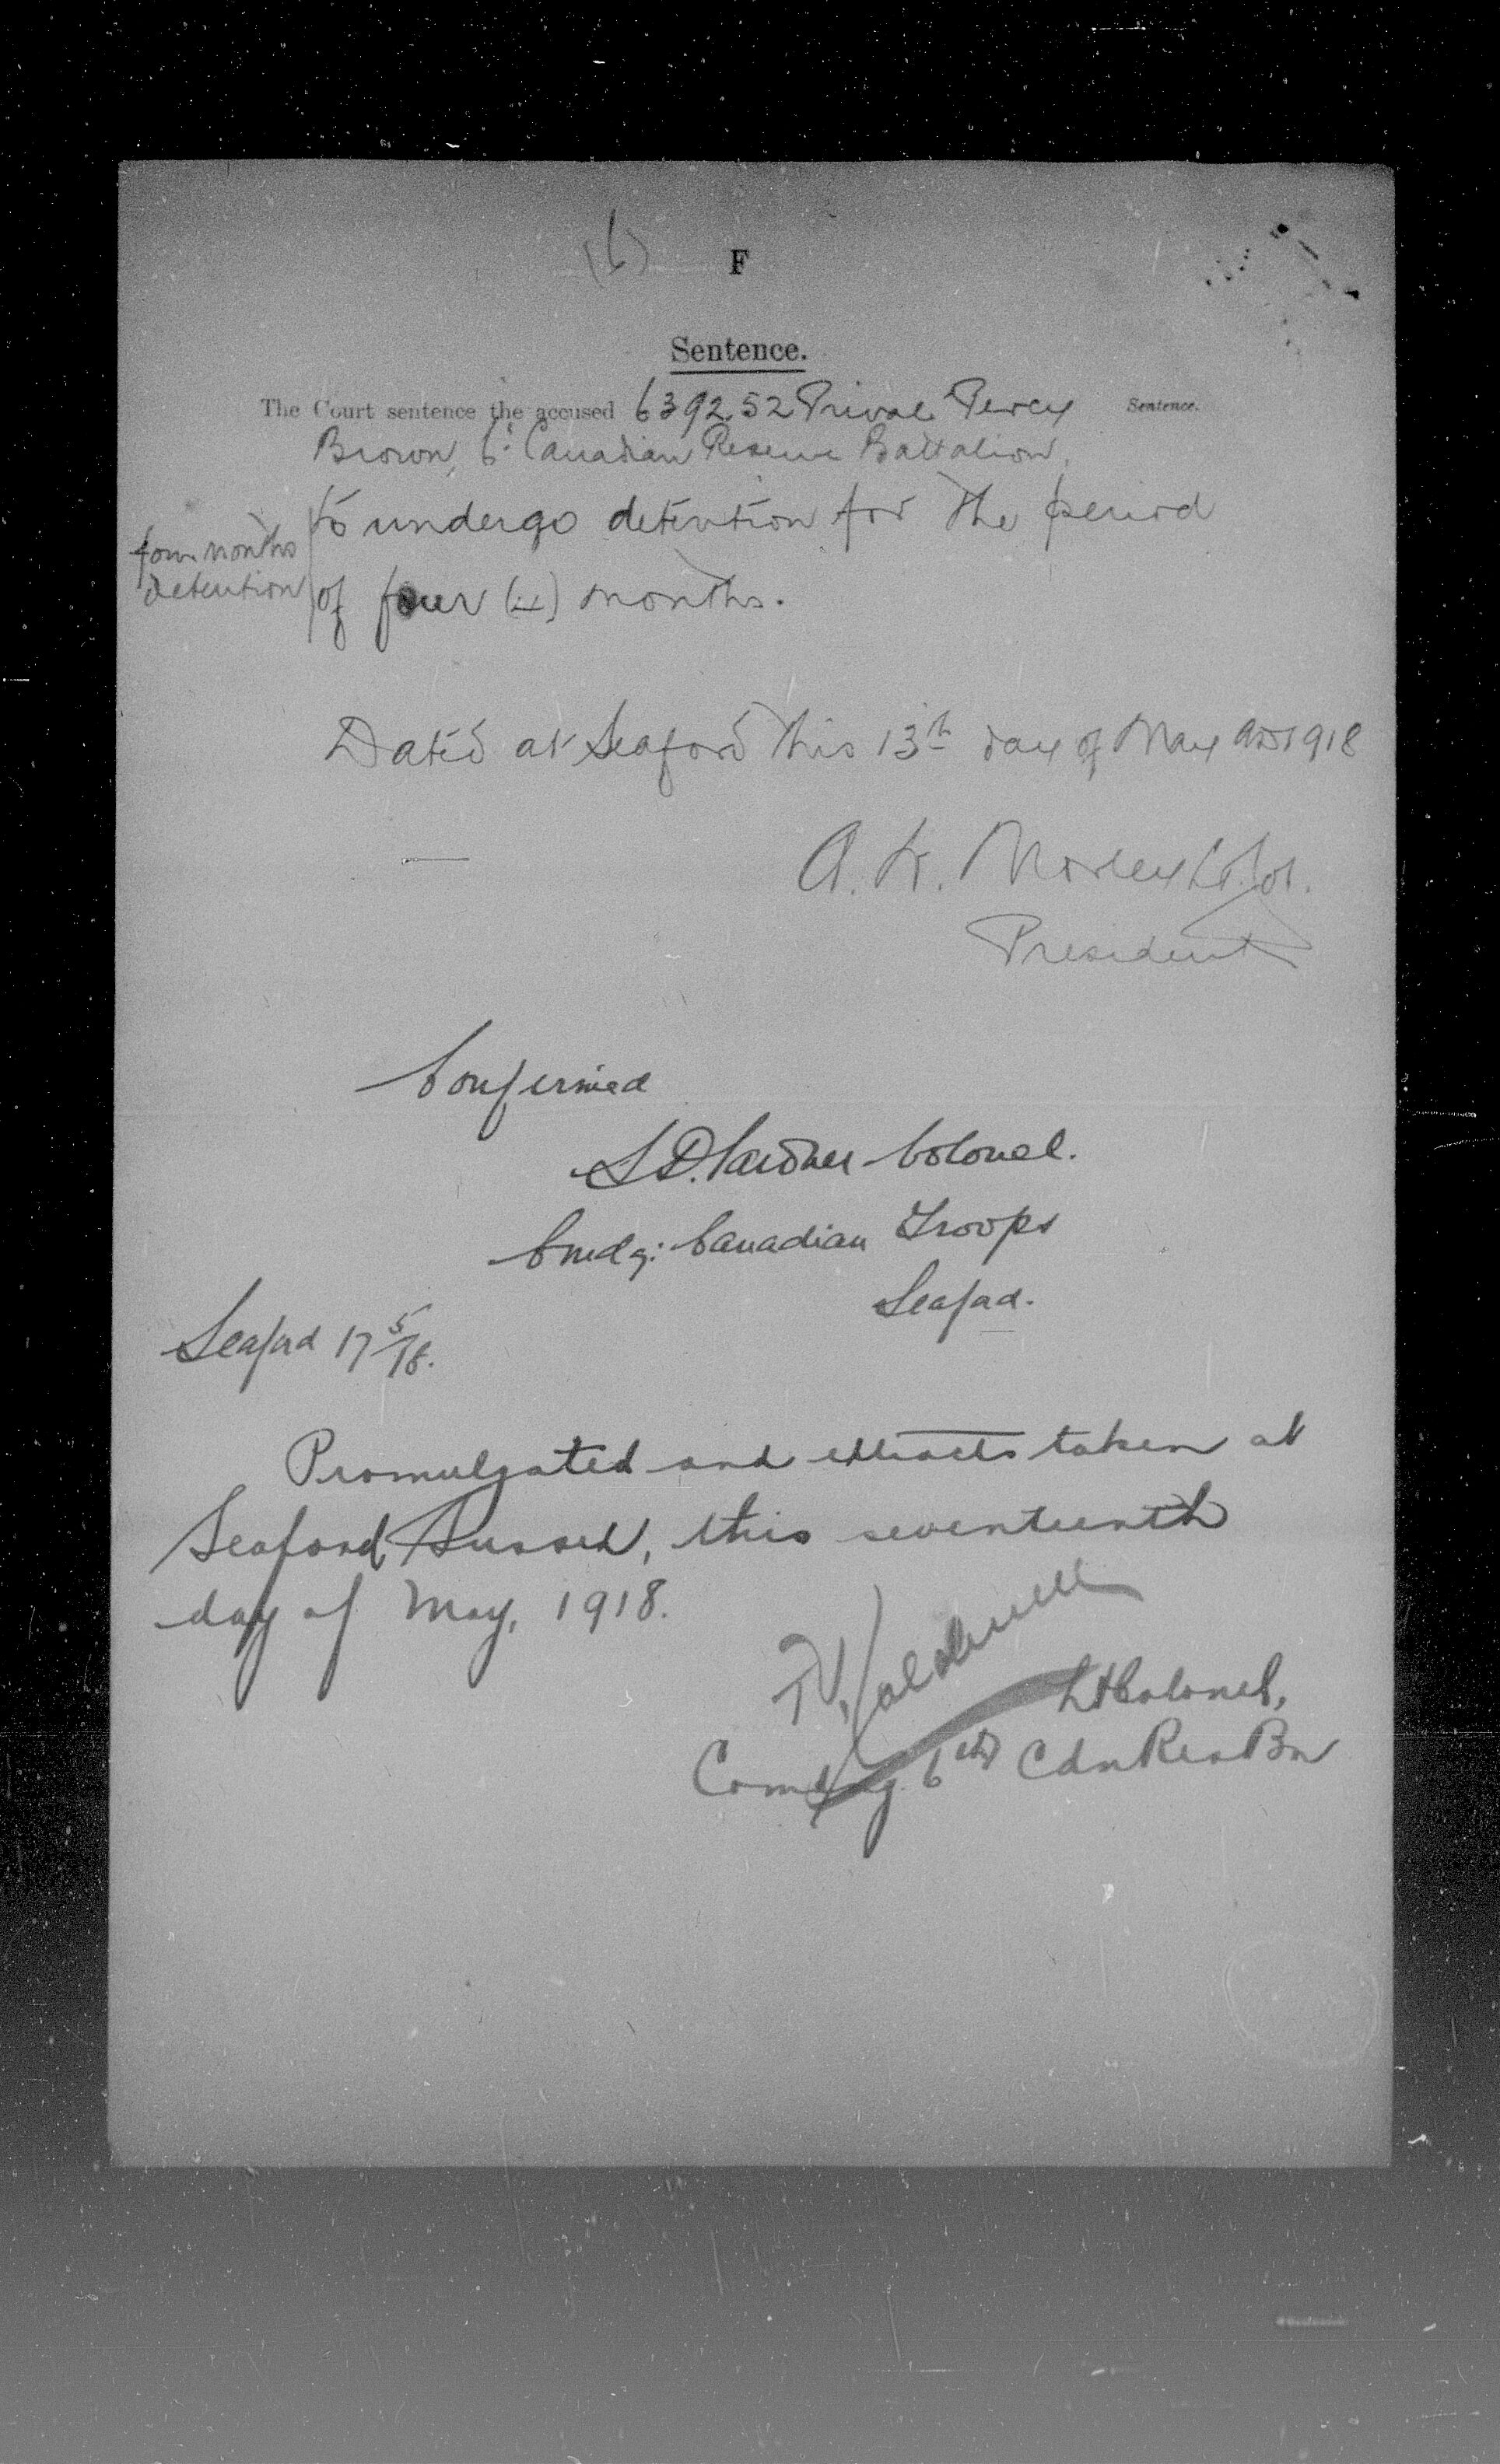 (6)
F
Sentence.
The Court sentence the accused 639252 Private Percy
Sentence.
Brown, 6th Canadian Reserve Battalion,
to undergo detention for the period
four months
detention
of four (4) months.
Dated at Seaford this 13th day of May AD 1918
A. W. Morley Lt. Col.
President
Confirmed
S. D. Gardner Colonel.
Cmdg: Canadian Troops
Seaford.
Seaford 17/5/18.
Promulgated and extracts taken at
Seaford, Sussex, this seventeenth
day of May, 1918.
Caldwell
Lt Colonel,
Comdg. 6th Cdn Res Bn